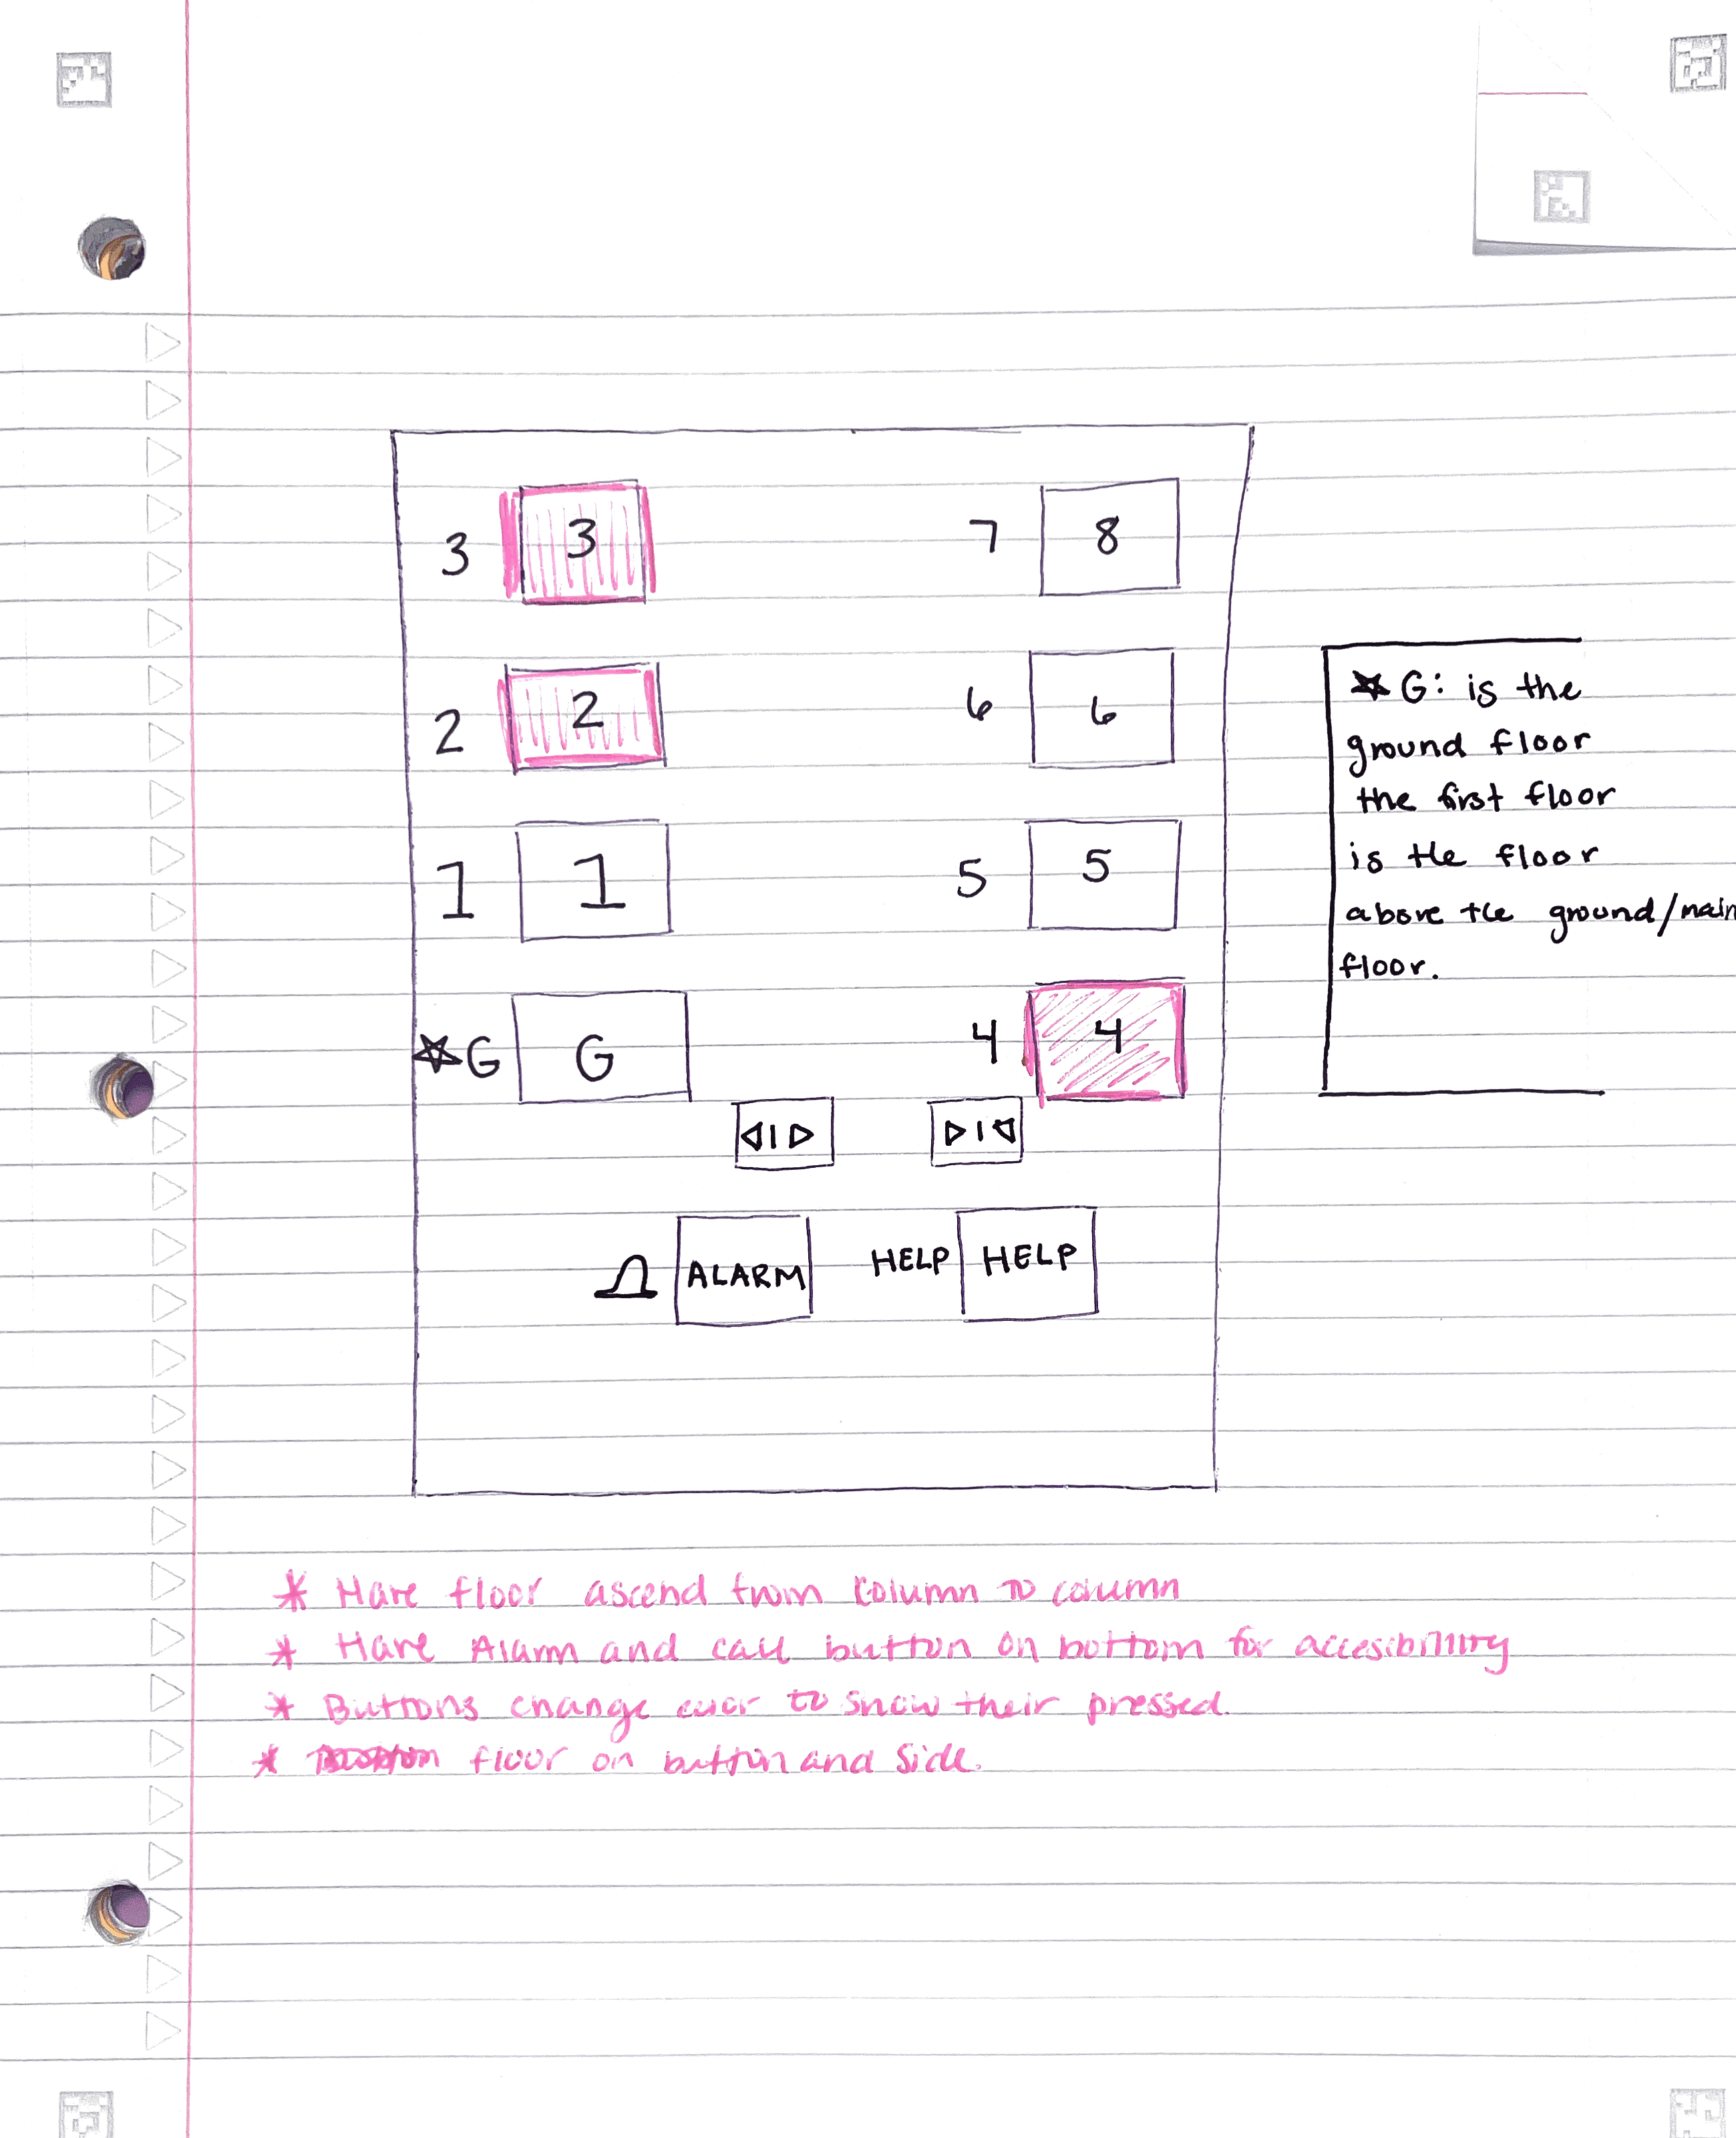 3 3 7 8
2 2 6 6
1 1 5 5
G G 4 4
ALARM HELP HELP
G: is the
ground floor
the first floor
is the floor
above the ground/main
floor.
* Have floor ascend from column to column
* Have Alarm and call button on bottom for accesibility
* Buttons change color to show their pressed.
* floor on button and side.